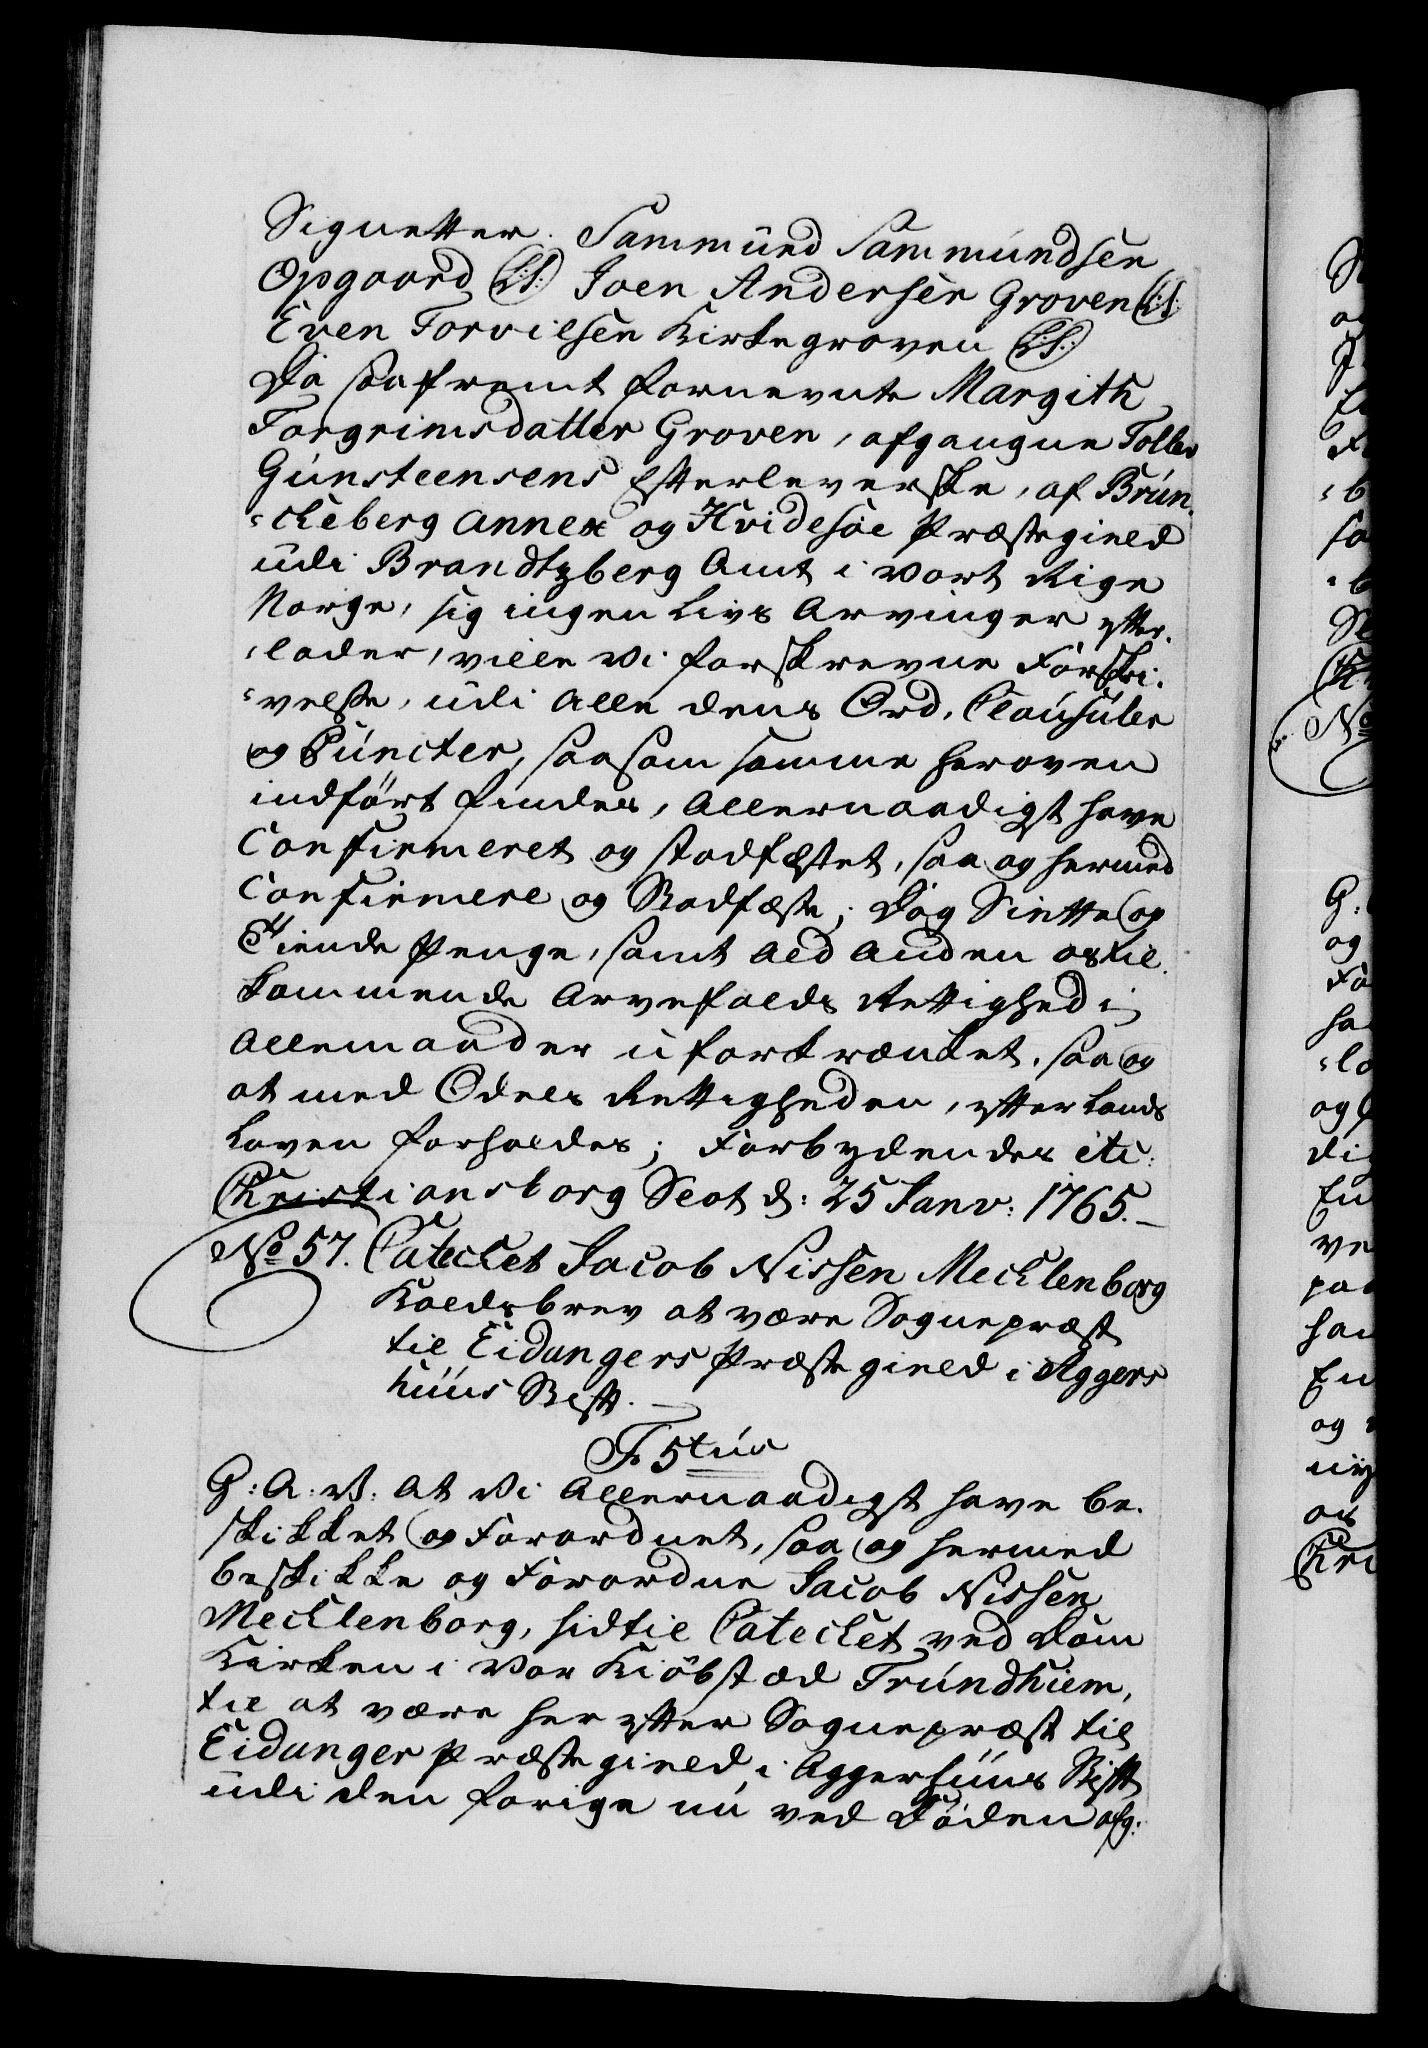 Signetter. Sammund Sammundsen
Opgaard (L:S:) Joen Andersen Groven (L:S:
Even Torvilsen Kirkegroven (L:S:)
Da saafremt fornevnte Margith
Torgrimsdatter Groven, afgangne Tollev
Gunsteensens Efterleverske, af Brún-
=cheberg Annex og Hvidesøe Præstegield
udi Brandtzberg Amt i vort Rige
Norge, sig ingen Livs Arvinger efter-
=lader, ville Vi forskrevne Forskri-
=velse, udi alle dens Ord, Clausuler
og Puncter, saasom samme heroven
indført findes, allernaadigst have
Confirmeret og stadfæstet, saa og hermed
Confirmere og Stadfæste; Dog Siette og
Tiende Penge, samt ald anden os til-
kommende Arvefalds Rettighed i
allemaader uforkrænket, saa og
at med Odels Rettigheden, efter Lands
Loven forholdes; Forbydendes etc:
Christiansborg Slot d: 25 Janv: 1765.—
No 57. Catechet Jacob Nissen Mechlenborg
Kaldsbrev at være Sognepræst
til Eidangers Præstegield i Aggers
huus Stift.
F. 5tus
G: A: V: At Vi Allernaadigst have be-
skikket og Forordnet, saa og hermed
beskikke og Forordne Jacob Nissen
Mechlenborg, hidtil Catechet ved Dom
Kirken i Vor Kiøbstæd Trundhiem,
til at være her efter Sognepræst til
Eidanger Præstegield i Aggershuus Stift
udi den forige nu ved Døden afg: